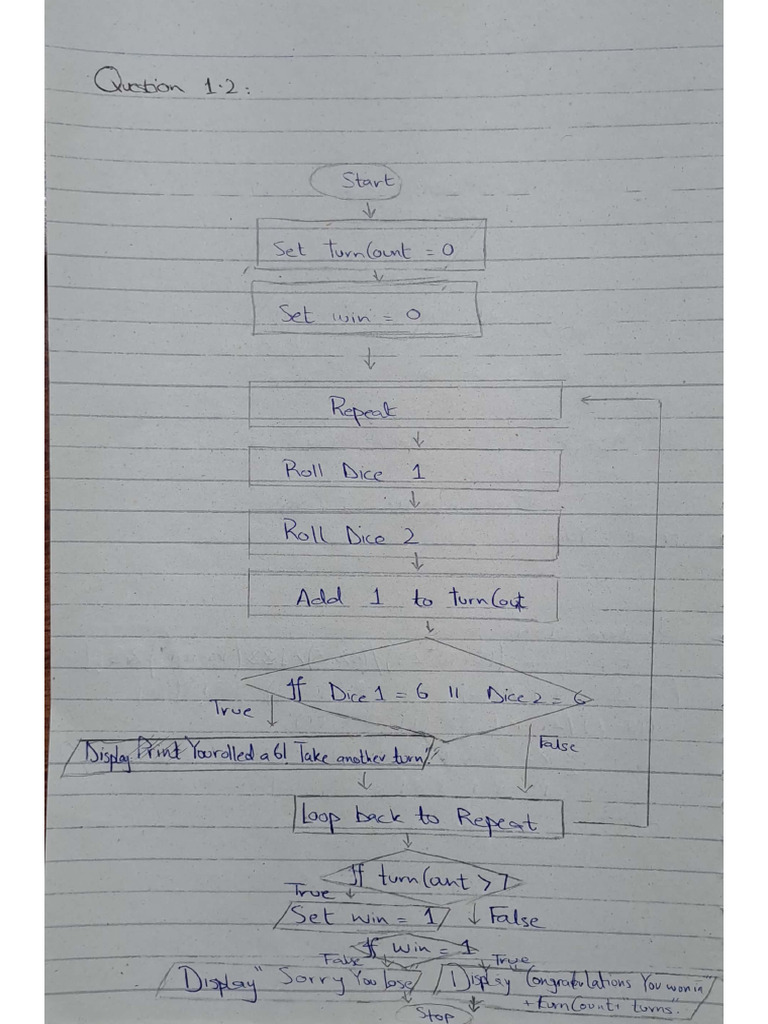 Question 1.2:
Start
Set turnCount = 0
Set win = 0
Repeat
Roll Dice 1
Roll Dice 2
Add 1 to turnCout
If Dice 1 = 6 || Dice 2 = 6
True
False
Display Print You rolled a 6! Take another turn"
Loop back to Repeat
If turnCount > 7
True
Set win = 1
False
If win = 1
False
True
Display" Sorry You lose
Display Congratulations You won in"
+ turnCount + "turns".
Stop